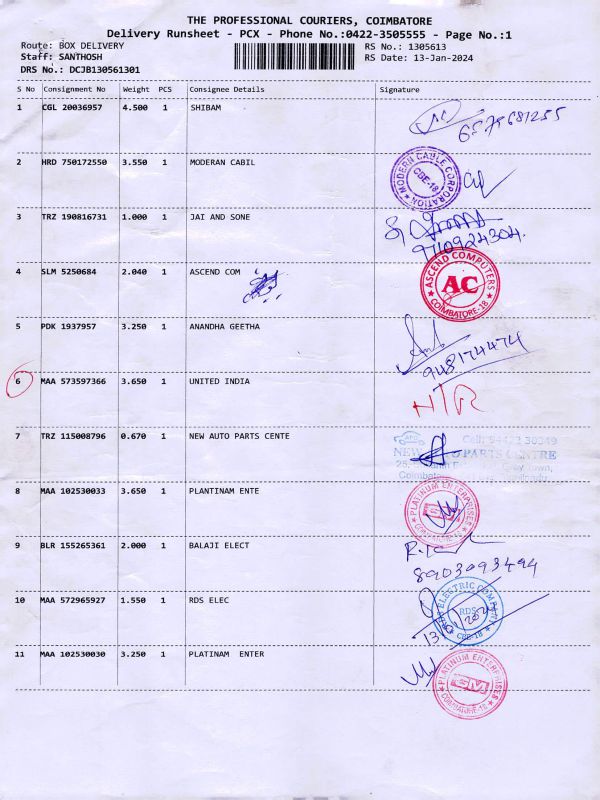 THE PROFESSIONAL COURIERS, COIMBATORE
Delivery Runsheet - PCX - Phone No.:0422-3505555 - Page No.:1
Route: BOX DELIVERY
RS No.: 1305613
Staff: SANTHOSH
RS Date: 13-Jan-2024
DRS No.: DCJB130561301
S No Consignment No Weight PCS Consignee Details Signature
1 CGL 20036957 4.500 1 SHIBAM
2 HRD 750172550 3.550 1 MODERAN CABIL
MODERN CABLE CORPORATION CBE-18
3 TRZ 190816731 1.000 1 JAI AND SONE
9710924304
4 SLM 5250684 2.040 1 ASCEND COM
ASCEND COMPUTERS AC COIMBATORE-18
5 PDK 1937957 3.250 1 ANANDHA GEETHA
6 MAA 573597366 3.650 1 UNITED INDIA
7 TRZ 115008796 0.670 1 NEW AUTO PARTS CENTE
Cell: 94422 30349
NEW AUTO PARTS CENTRE
8 MAA 102530033 3.650 1 PLANTINAM ENTE
PLATINUM ENTERPRISES COIMBATORE-18
9 BLR 155265361 2.000 1 BALAJI ELECT
8903093494
10 MAA 572965927 1.550 1 RDS ELEC
ELECTRIC COMPANY RDS CBE-18
11 MAA 102530030 3.250 1 PLATINAM ENTER
PLATINUM ENTERPRISES COIMBATORE-18